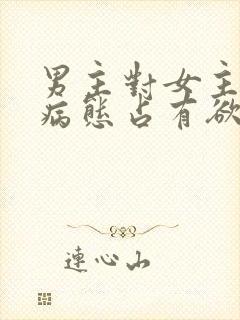 男主對女主
病態占有欲
連心山